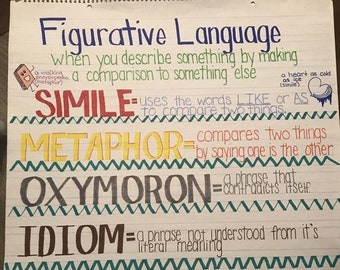 Figurative Language
when you describe something by making
a comparison to something else
a walking
encyclopedia
(metaphor)
a heart as cold
as ice
(simile)
SIMILE=uses the words LIKE or AS
to compare two things
METAPHOR=compares two things
by saying one is the other
OXYMORON=a phrase that
contradicts itself
IDIOM=a phrase not understood from it's
literal meaning